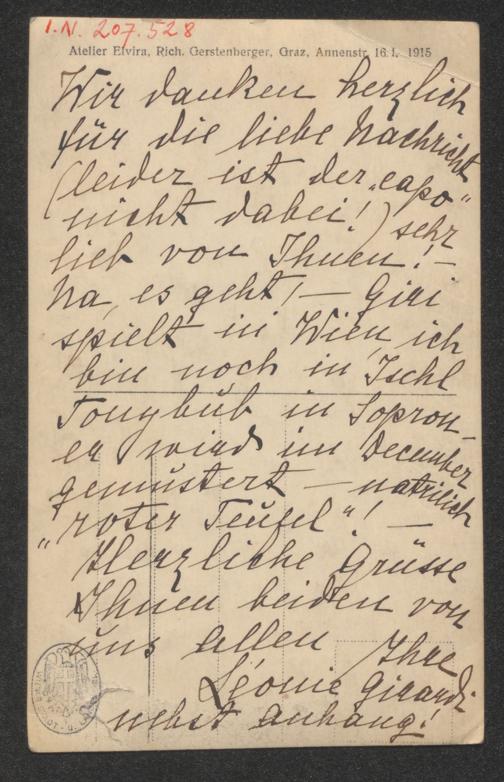 I.N. 207.528
Atelier Elvira, Rich. Gerstenberger, Graz, Annenstr. 16.I. 1915
Wir danken herzlich
für die liebe Nachricht
(leider ist der „capo“
nicht dabei!) sehr
lieb von Ihnen! –
Na, es geht! – Giri
spielt in Wien, ich
bin noch in Ischl
Tonybub in Sopron –
er wird im December
gemustert – natürlich
„roter Teufel“! –
Herzliche Grüsse
Ihnen beiden von
uns allen Ihre
Léonie Girardi
nebst Anhang!